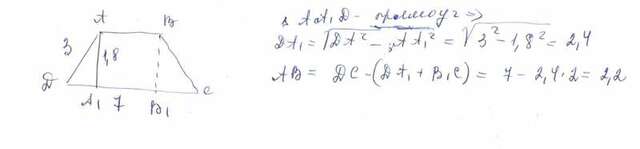 A B
3 1,8
D A₁ 7 B₁ C
в AA₁D - прямоуг =>
DA₁ = √(DA² - AA₁²) = √(3² - 1,8²) = 2,4
AB = DC - (DA₁ + B₁C) = 7 - 2,4·2 = 2,2